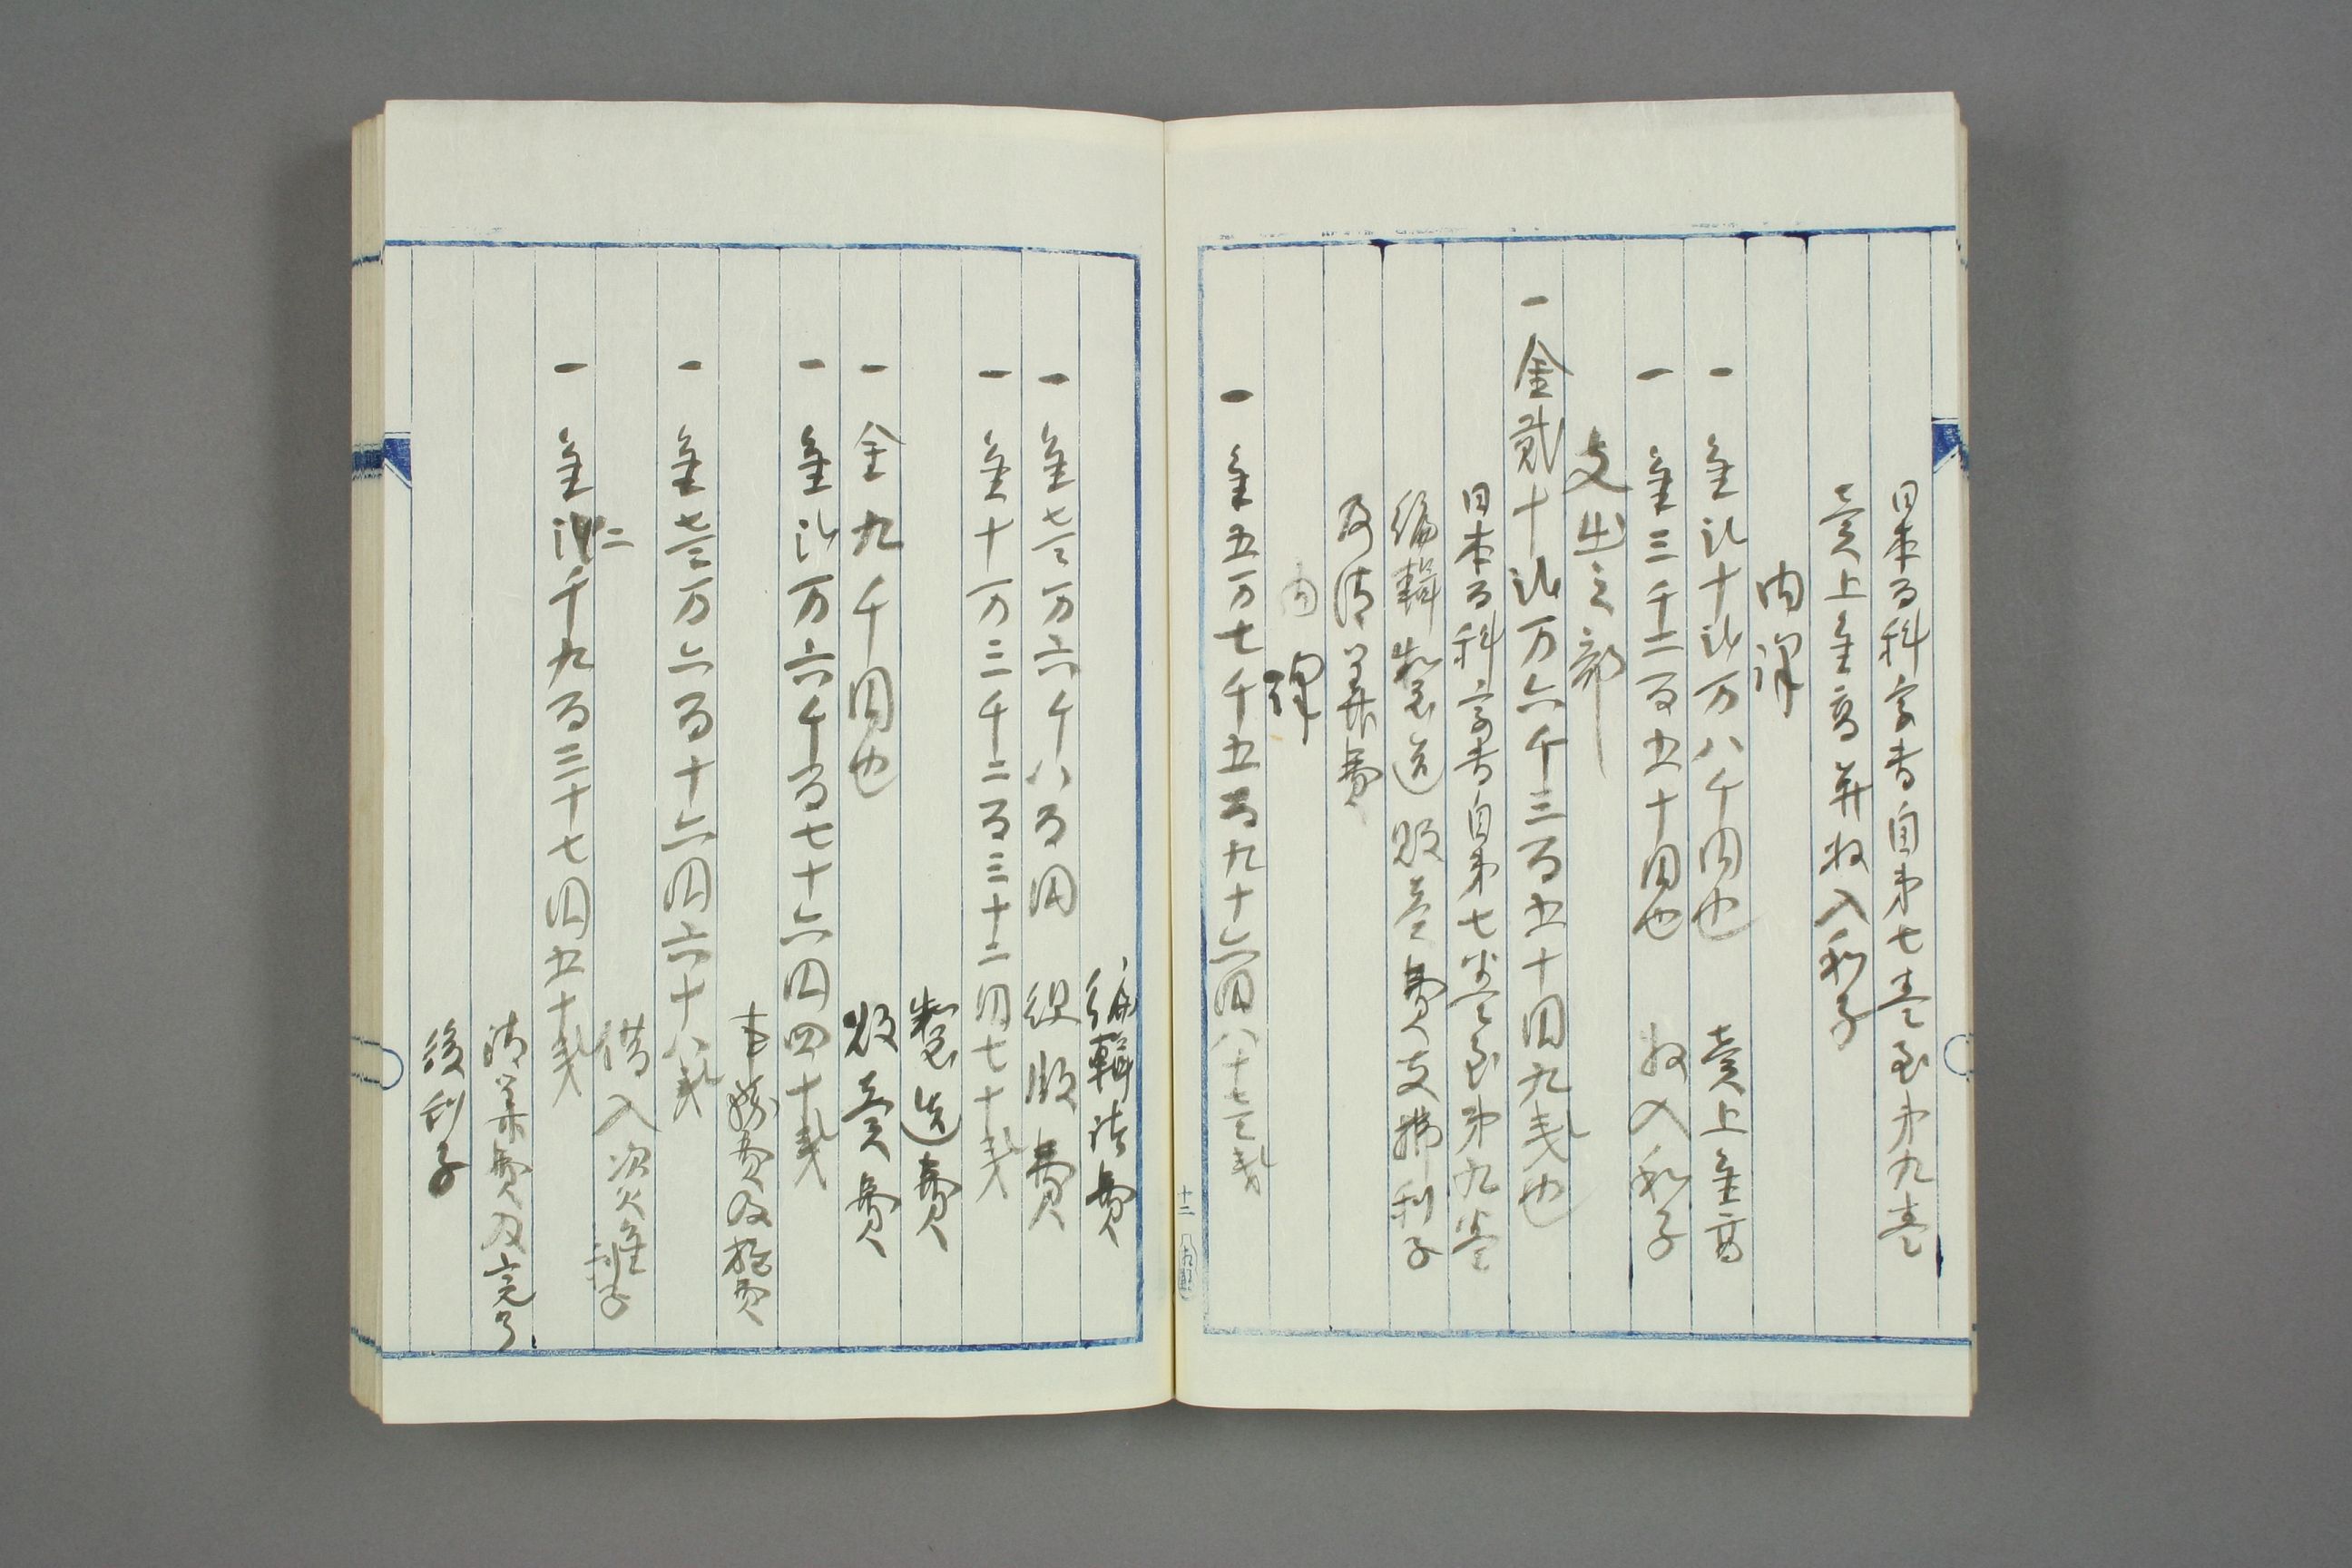 日本百科字書自第七巻至第九巻
売上金高并収入利子
内訳
一 金弐十弐万八千円也 売上金高
一 金三千二百五十円也 収入利子
支出之部
一 金貳十弐万六千三百五十円九銭也
日本百科字書自第七巻至第九巻
編輯製造販売費支拂利子
及清算費
内訳
一 金五万七千五百九十六円八十七銭
十二
編輯諸費
一 金七万六千八百円 組版費
一 金十万三千二百三十二円七十銭
製造費
一 金九千円也
販売費
一 金弐万六千百七十六円四十銭
事務費及雑費
一 金七万六百十六円六十八銭
借入資金利子
一 金二千九百三十七円五十銭
清算費及完了
後利子